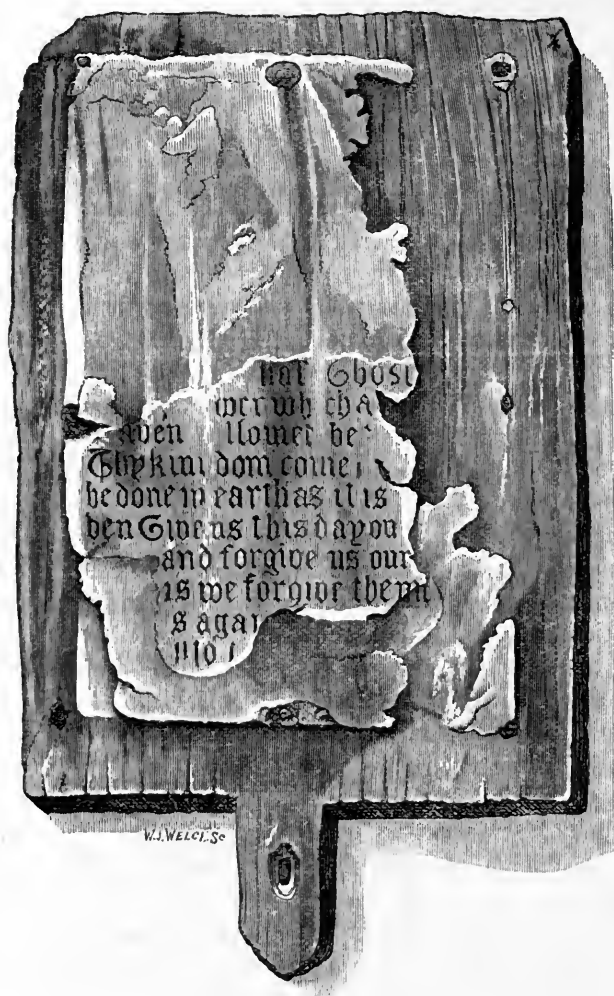 hat Ghost
wer wh ch A
aven llowed be
Thy kin dom come
be done in earth as it is
ven Give us this day ou
and forgive us our
as we forgive them
s agai
W.J. WELCH. Sc